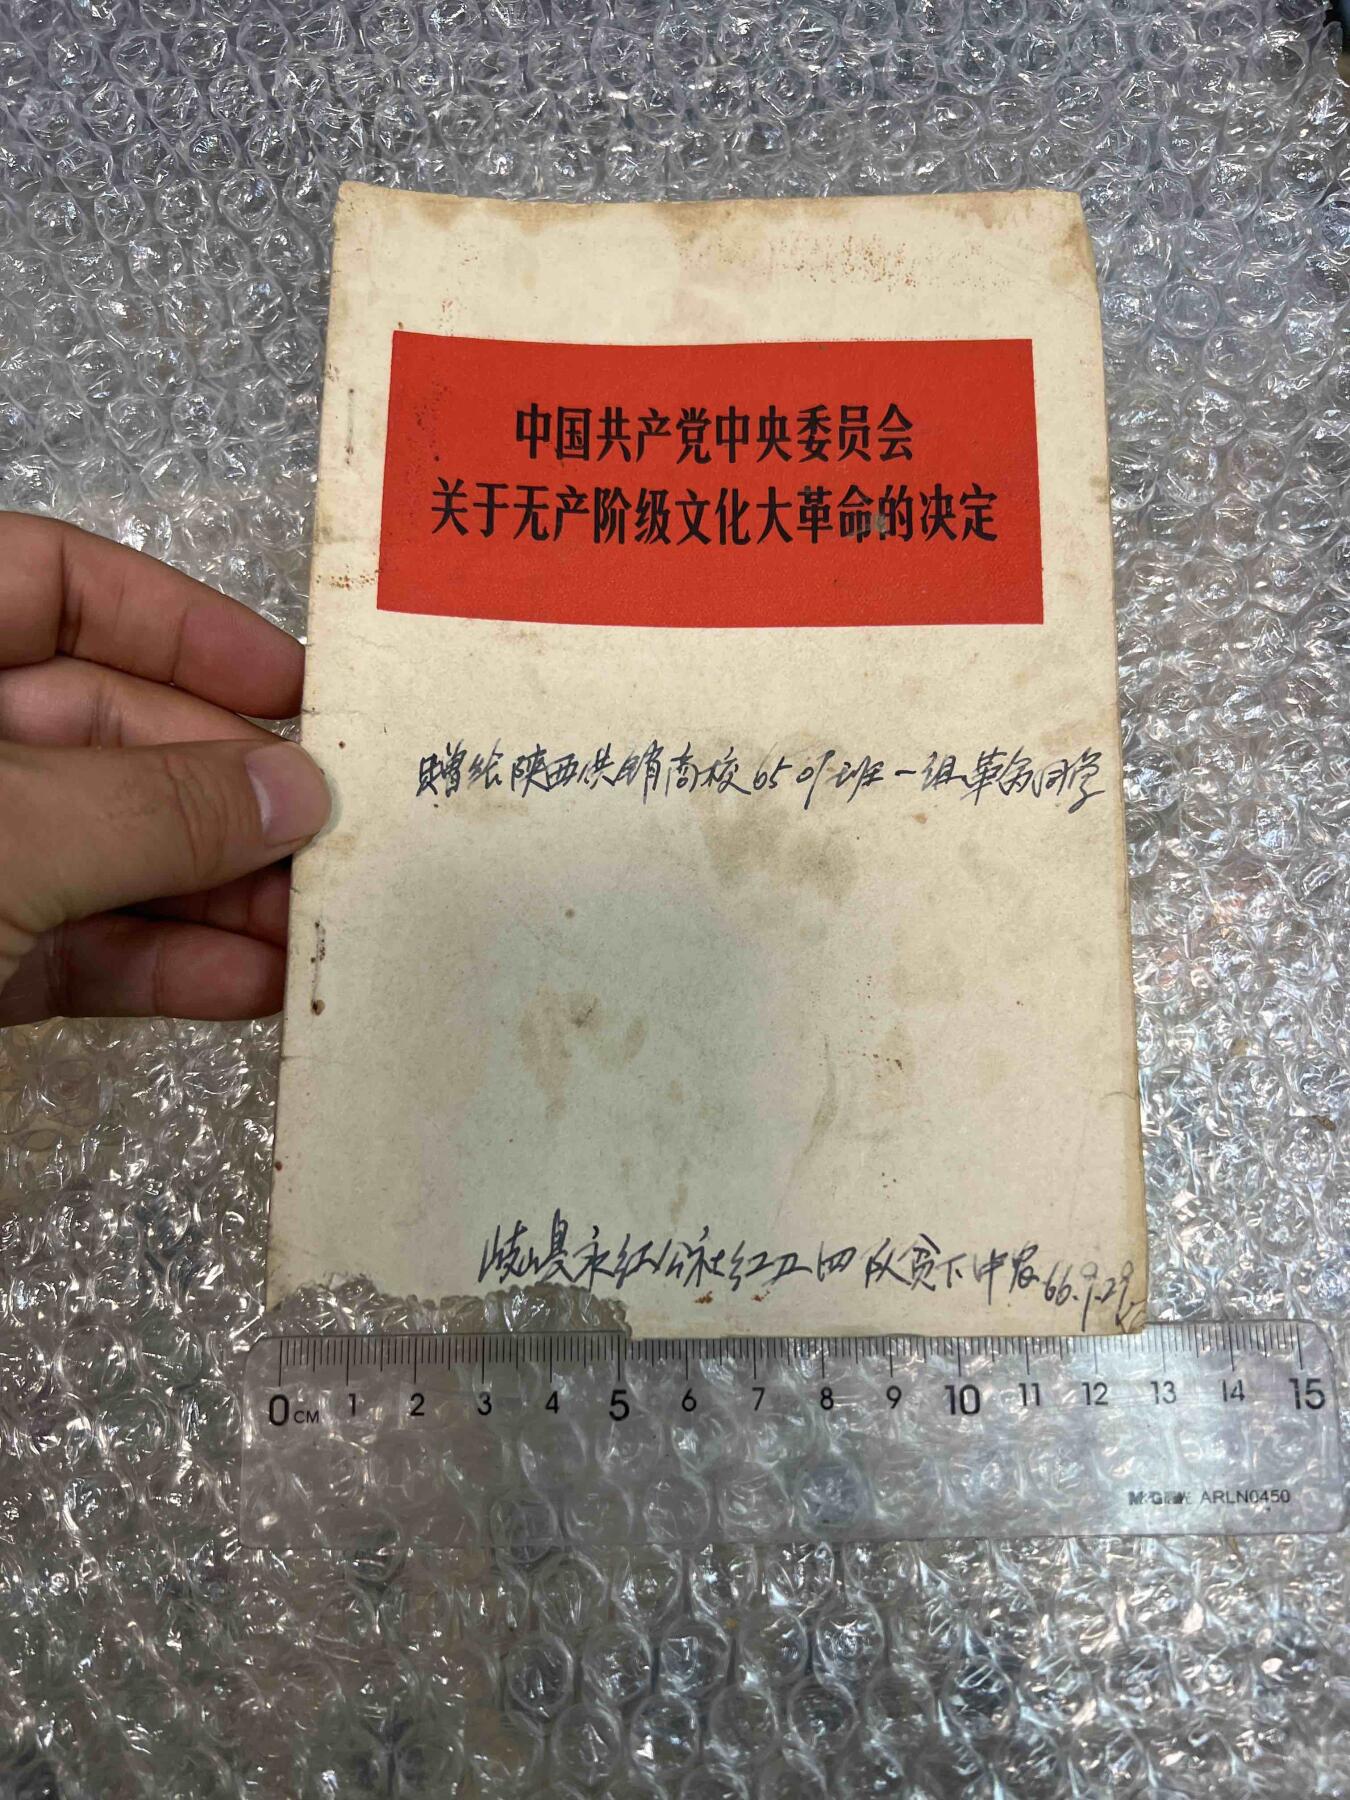 中国共产党中央委员会
关于无产阶级文化大革命的决定
赠给陕西供销商校6501班一组革命同学
岐山县永红公社红卫四队贫下中农66.9.29
0CM 1 2 3 4 5 6 7 8 9 10 11 12 13 14 15
M&G晨光 ARLN0450